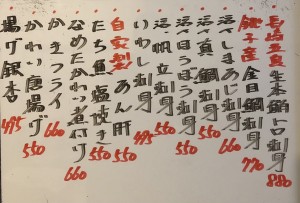 長崎五島生本鮪トロ刺身 880
銚子産金目鯛刺身 770
活〆しまあじ刺身 550
活〆真鯛刺身 550
活帆立刺身 550
いわし刺身 495
自家製あん肝 550
たち魚塩焼き 550
なめたかれい煮付け 660
かきフライ 660
かれい唐揚げ 550
揚げ銀杏 495